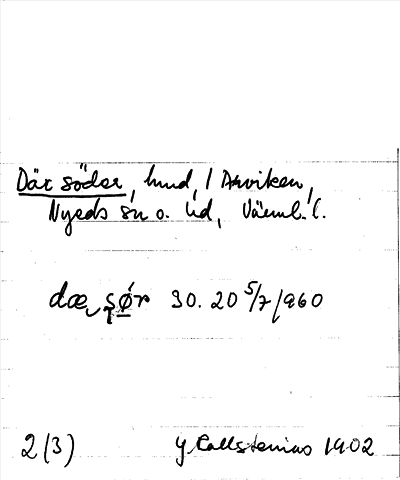 Där söder, lund, i Arviken,
Nyeds sn o. hd, Värml. l.
dæ‿ ʂør 30. 20 5/7 1960
2(3) G Kallstenius 1902